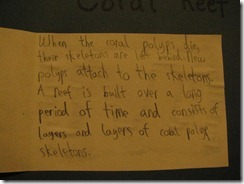 Coral Reef
When the coral polyps die,
their skeletons are left behind. New
polyps attach to the skeletons.
A reef is built over a long
period of time and consists of
layers and layers of coral polyp
skeletons.